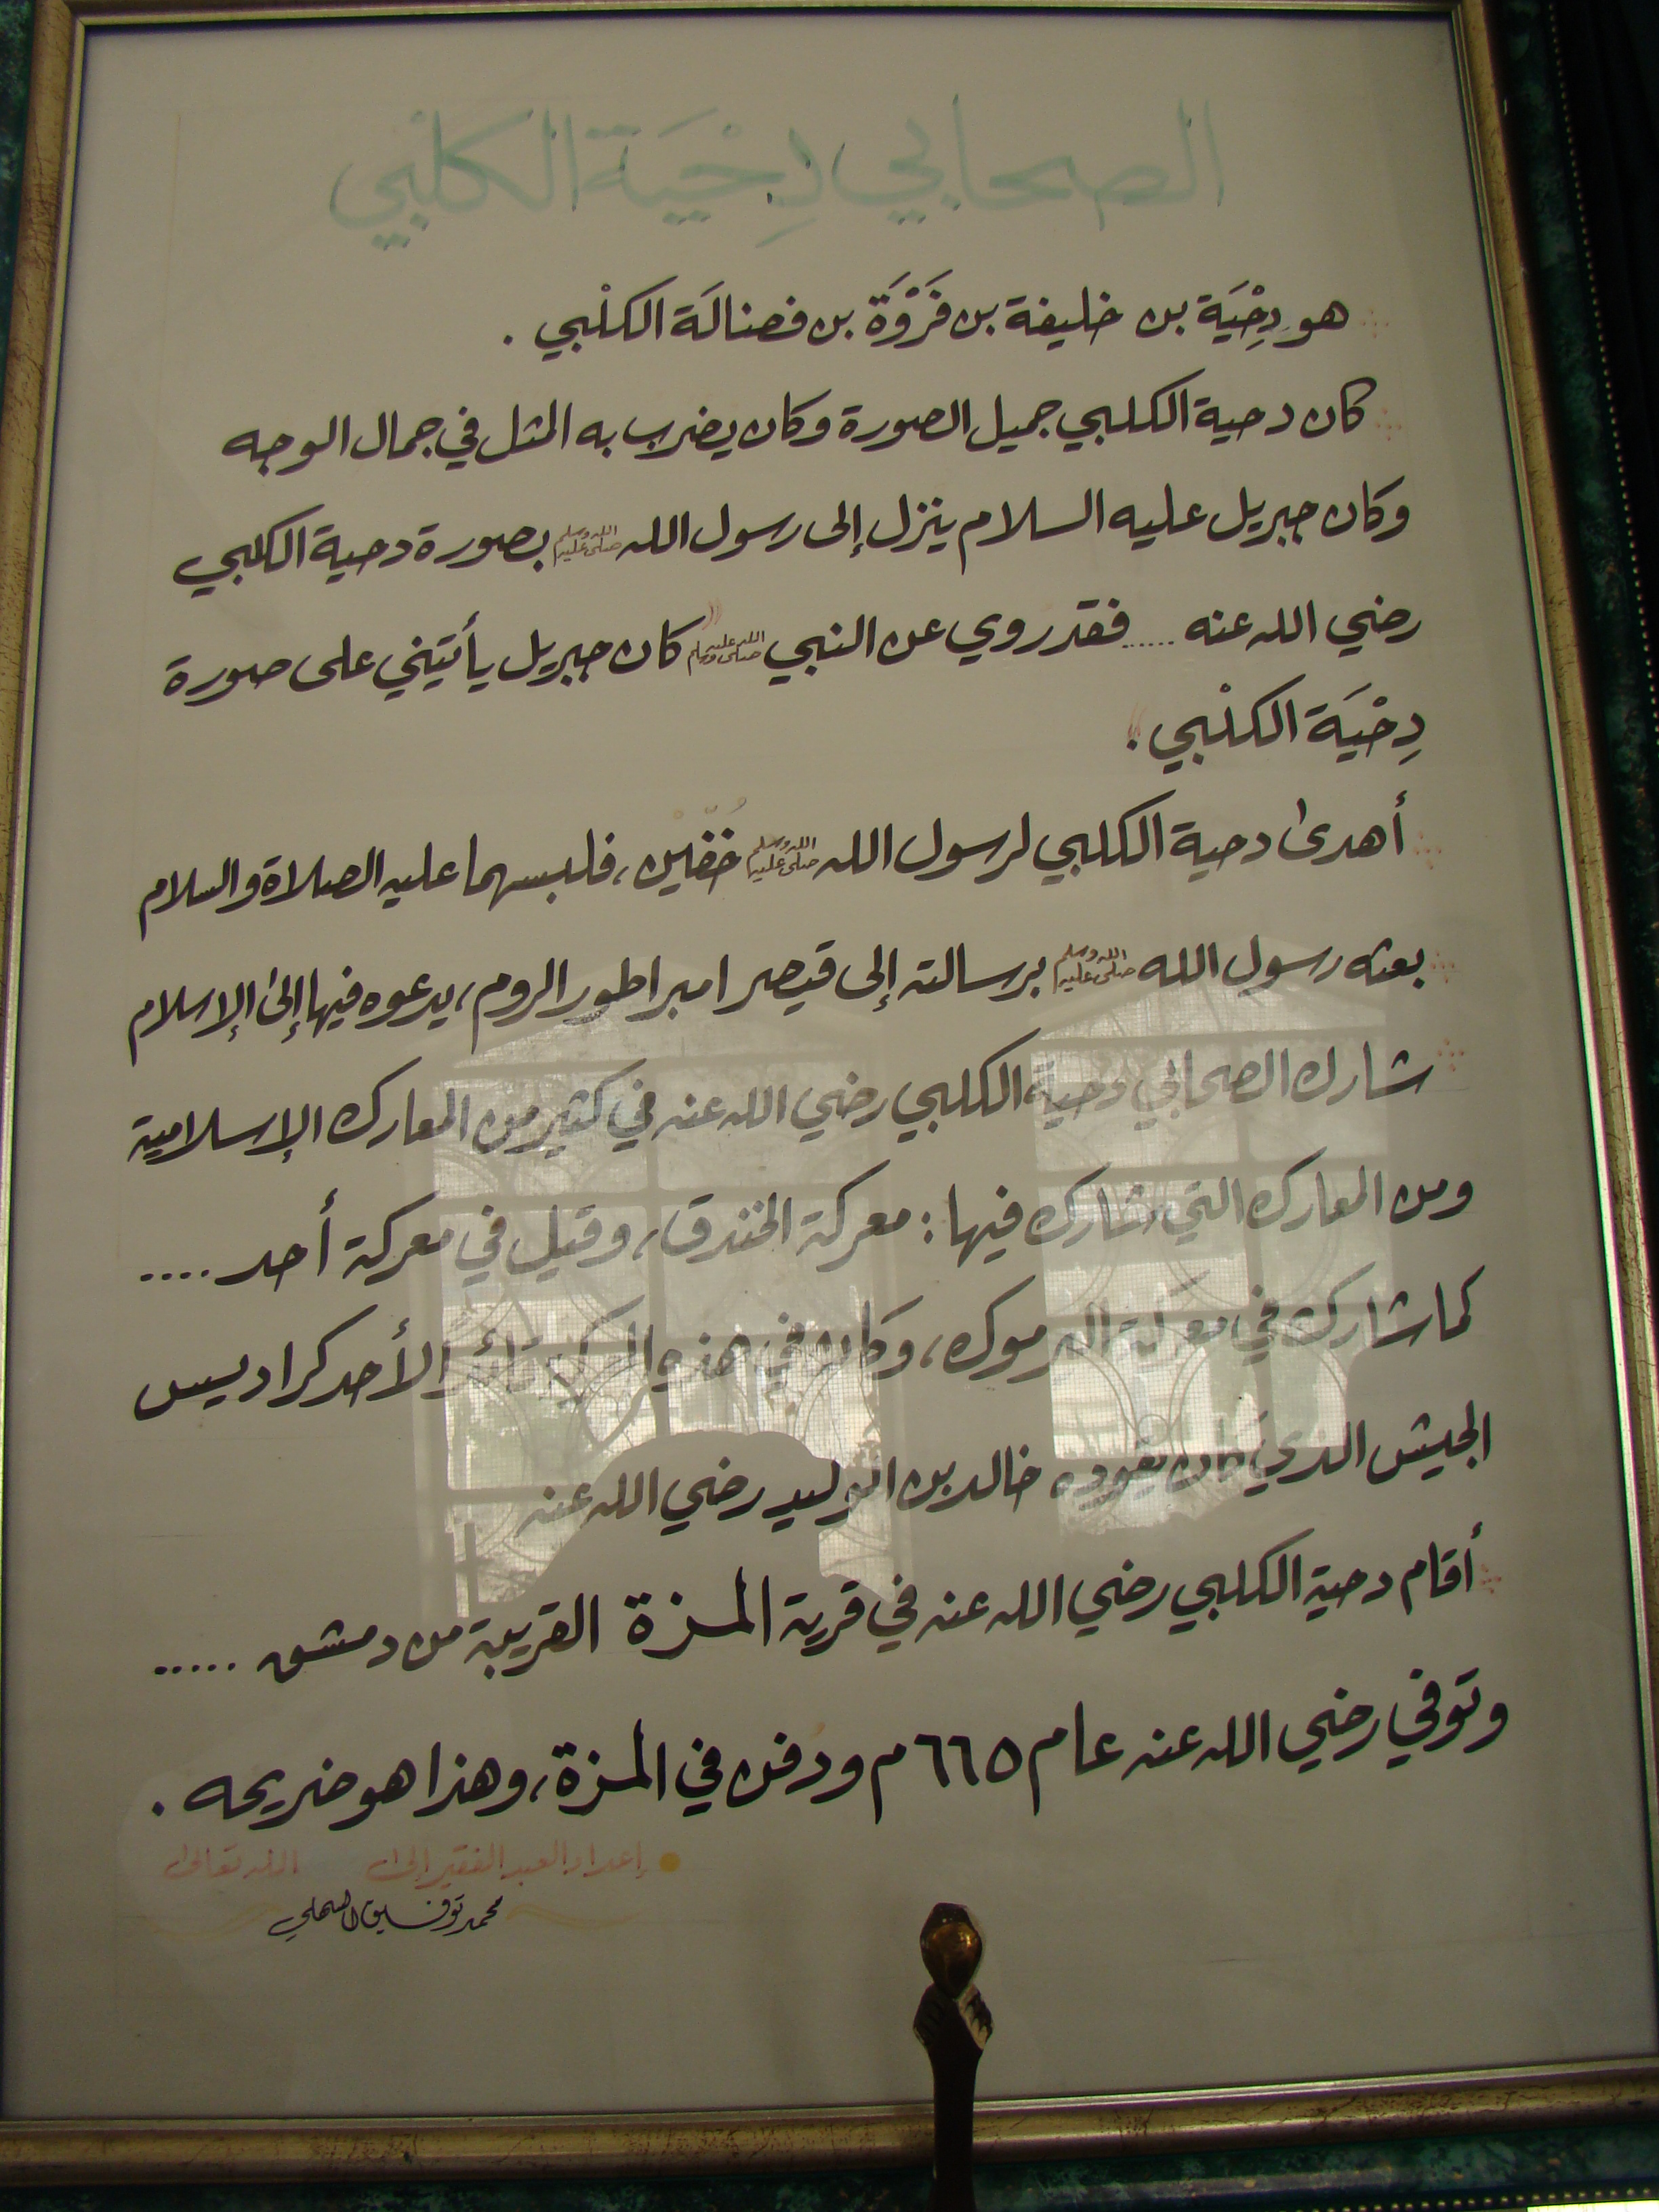 الصحابي دِحْيَة الكلبي
هو دِحْيَة بن خليفة بن فَرْوَة بن فضالَة الكلْبي .
كان دحية الكلبي جميل الصورة وكان يضرب به المثل في جمال الوجه
وكان جبريل عليه السلام ينزل إلى رسول الله ﷺ بصورة دحية الكلبي
رضي الله عنه ..... فقد روي عن النبي ﷺ (( كان جبريل يأتيني على صورة
دِحْيَة الكلْبي )) .
أهدى دحية الكلبي لرسول الله ﷺ خُفّيْن ، فلبسهما عليه الصلاة والسلام
بعثه رسول الله ﷺ برسالته إلى قيصر امبراطور الروم ، يدعوه فيها إلى الإسلام
شارك الصحابي دحية الكلبي رضي الله عنه في كثير من المعارك الإسلامية
ومن المعارك التي شارك فيها : معركة الخندق ، وقيل في معركة أحد ....
كما شارك في معركة اليرموك ، وكان في هذه المعركة قائداً لأحد كراديس
الجيش الذي كان يقوده خالد بن الوليد رضي الله عنه
أقام دحية الكلبي رضي الله عنه في قرية المزة القريبة من دمشق .....
وتوفي رضي الله عنه عام ٦٦٥ م ودفن في المزة ، وهذا هو ضريحه .
إعداد العبد الفقير إلى الله تعالى
محمد توفيق السهلي